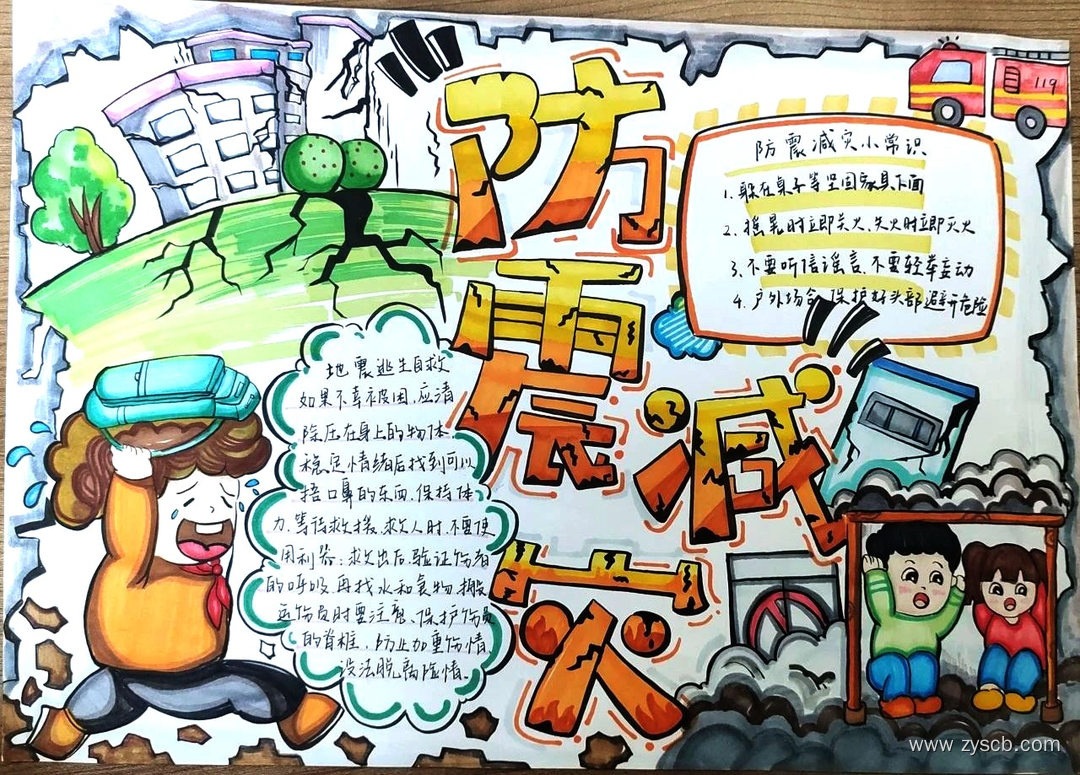 防震减灾
119
防震减灾小常识
1.躲在桌子等坚固家具下面
2.摇晃时立即关火、失火时立即灭火
3.不要听信谣言、不要轻举妄动
4.户外场合、保护好头部避开危险
地震逃生自救
如果不幸被困,应清
除压在身上的物体.
稳定情绪后找到可以
捂口鼻的东西.保持体
力.等待救援.救人时.不要使
用利器;救出后.验证伤者
的呼吸.再找水和食物.搬
运伤员时要注意、保护伤员
的脊椎,防止加重伤情.
设法脱离险情.
www.zyscb.com